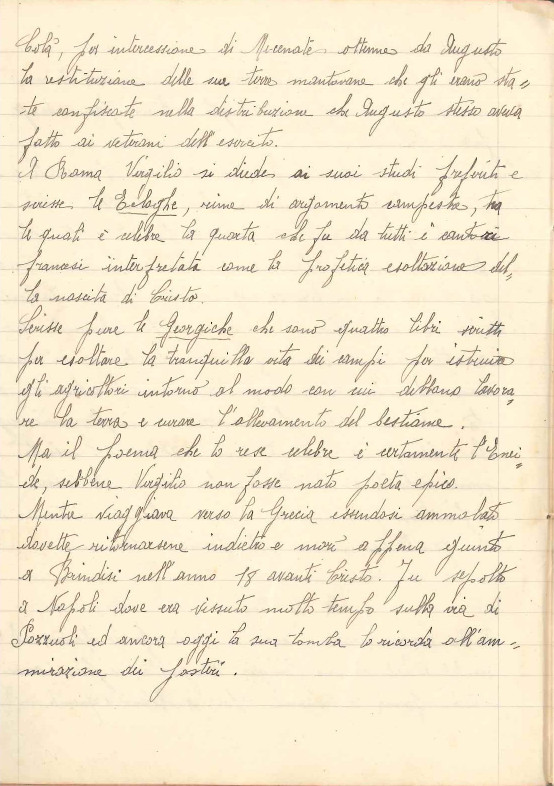 Colà, per intercessione di Mecenate ottenne da Augusto
la restituzione delle sue terre mantovane che gli erano sta=
te confiscate nella distribuzione che Augusto stesso aveva
fatto ai veterani dell'esercito.
A Roma Virgilio si diede ai suoi studi preferiti e
scrisse le Ecloghe, rime di argomento campestre, tra
le quali è celebre la quarta che fu da tutti i cantori
francesi interpretata come la profetica esaltazione del=
la nascita di Cristo.
Scrisse pure le Georgiche che sono quattro libri scritti
per esaltare la tranquilla vita dei campi per istruire
gli agricoltori intorno al modo con cui debbano lavora=
re la terra e curare l'allevamento del bestiame.
Ma il poema che lo rese celebre è certamente l'Enei=
de, sebbene Virgilio non fosse nato poeta epico.
Mentre viaggiava verso la Grecia essendosi ammalato
dovette ritornarsene indietro e morì appena giunto
a Brindisi nell'anno 18 avanti Cristo. Fu sepolto
a Napoli dove era vissuto molto tempo sulla via di
Pozzuoli ed ancora oggi la sua tomba lo ricorda all'am=
mirazione dei posteri.